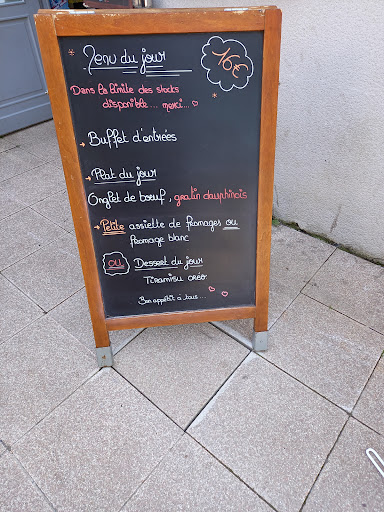 Menu du jour
16€
Dans la limite des stocks
disponible.... merci...
Buffet d'entrées
Plat du jour
Onglet de bœuf, gratin dauphinois
Petite assiette de fromages ou
fromage blanc
OU Dessert du jour
Tiramisu oréo
Bon appétit a tous...